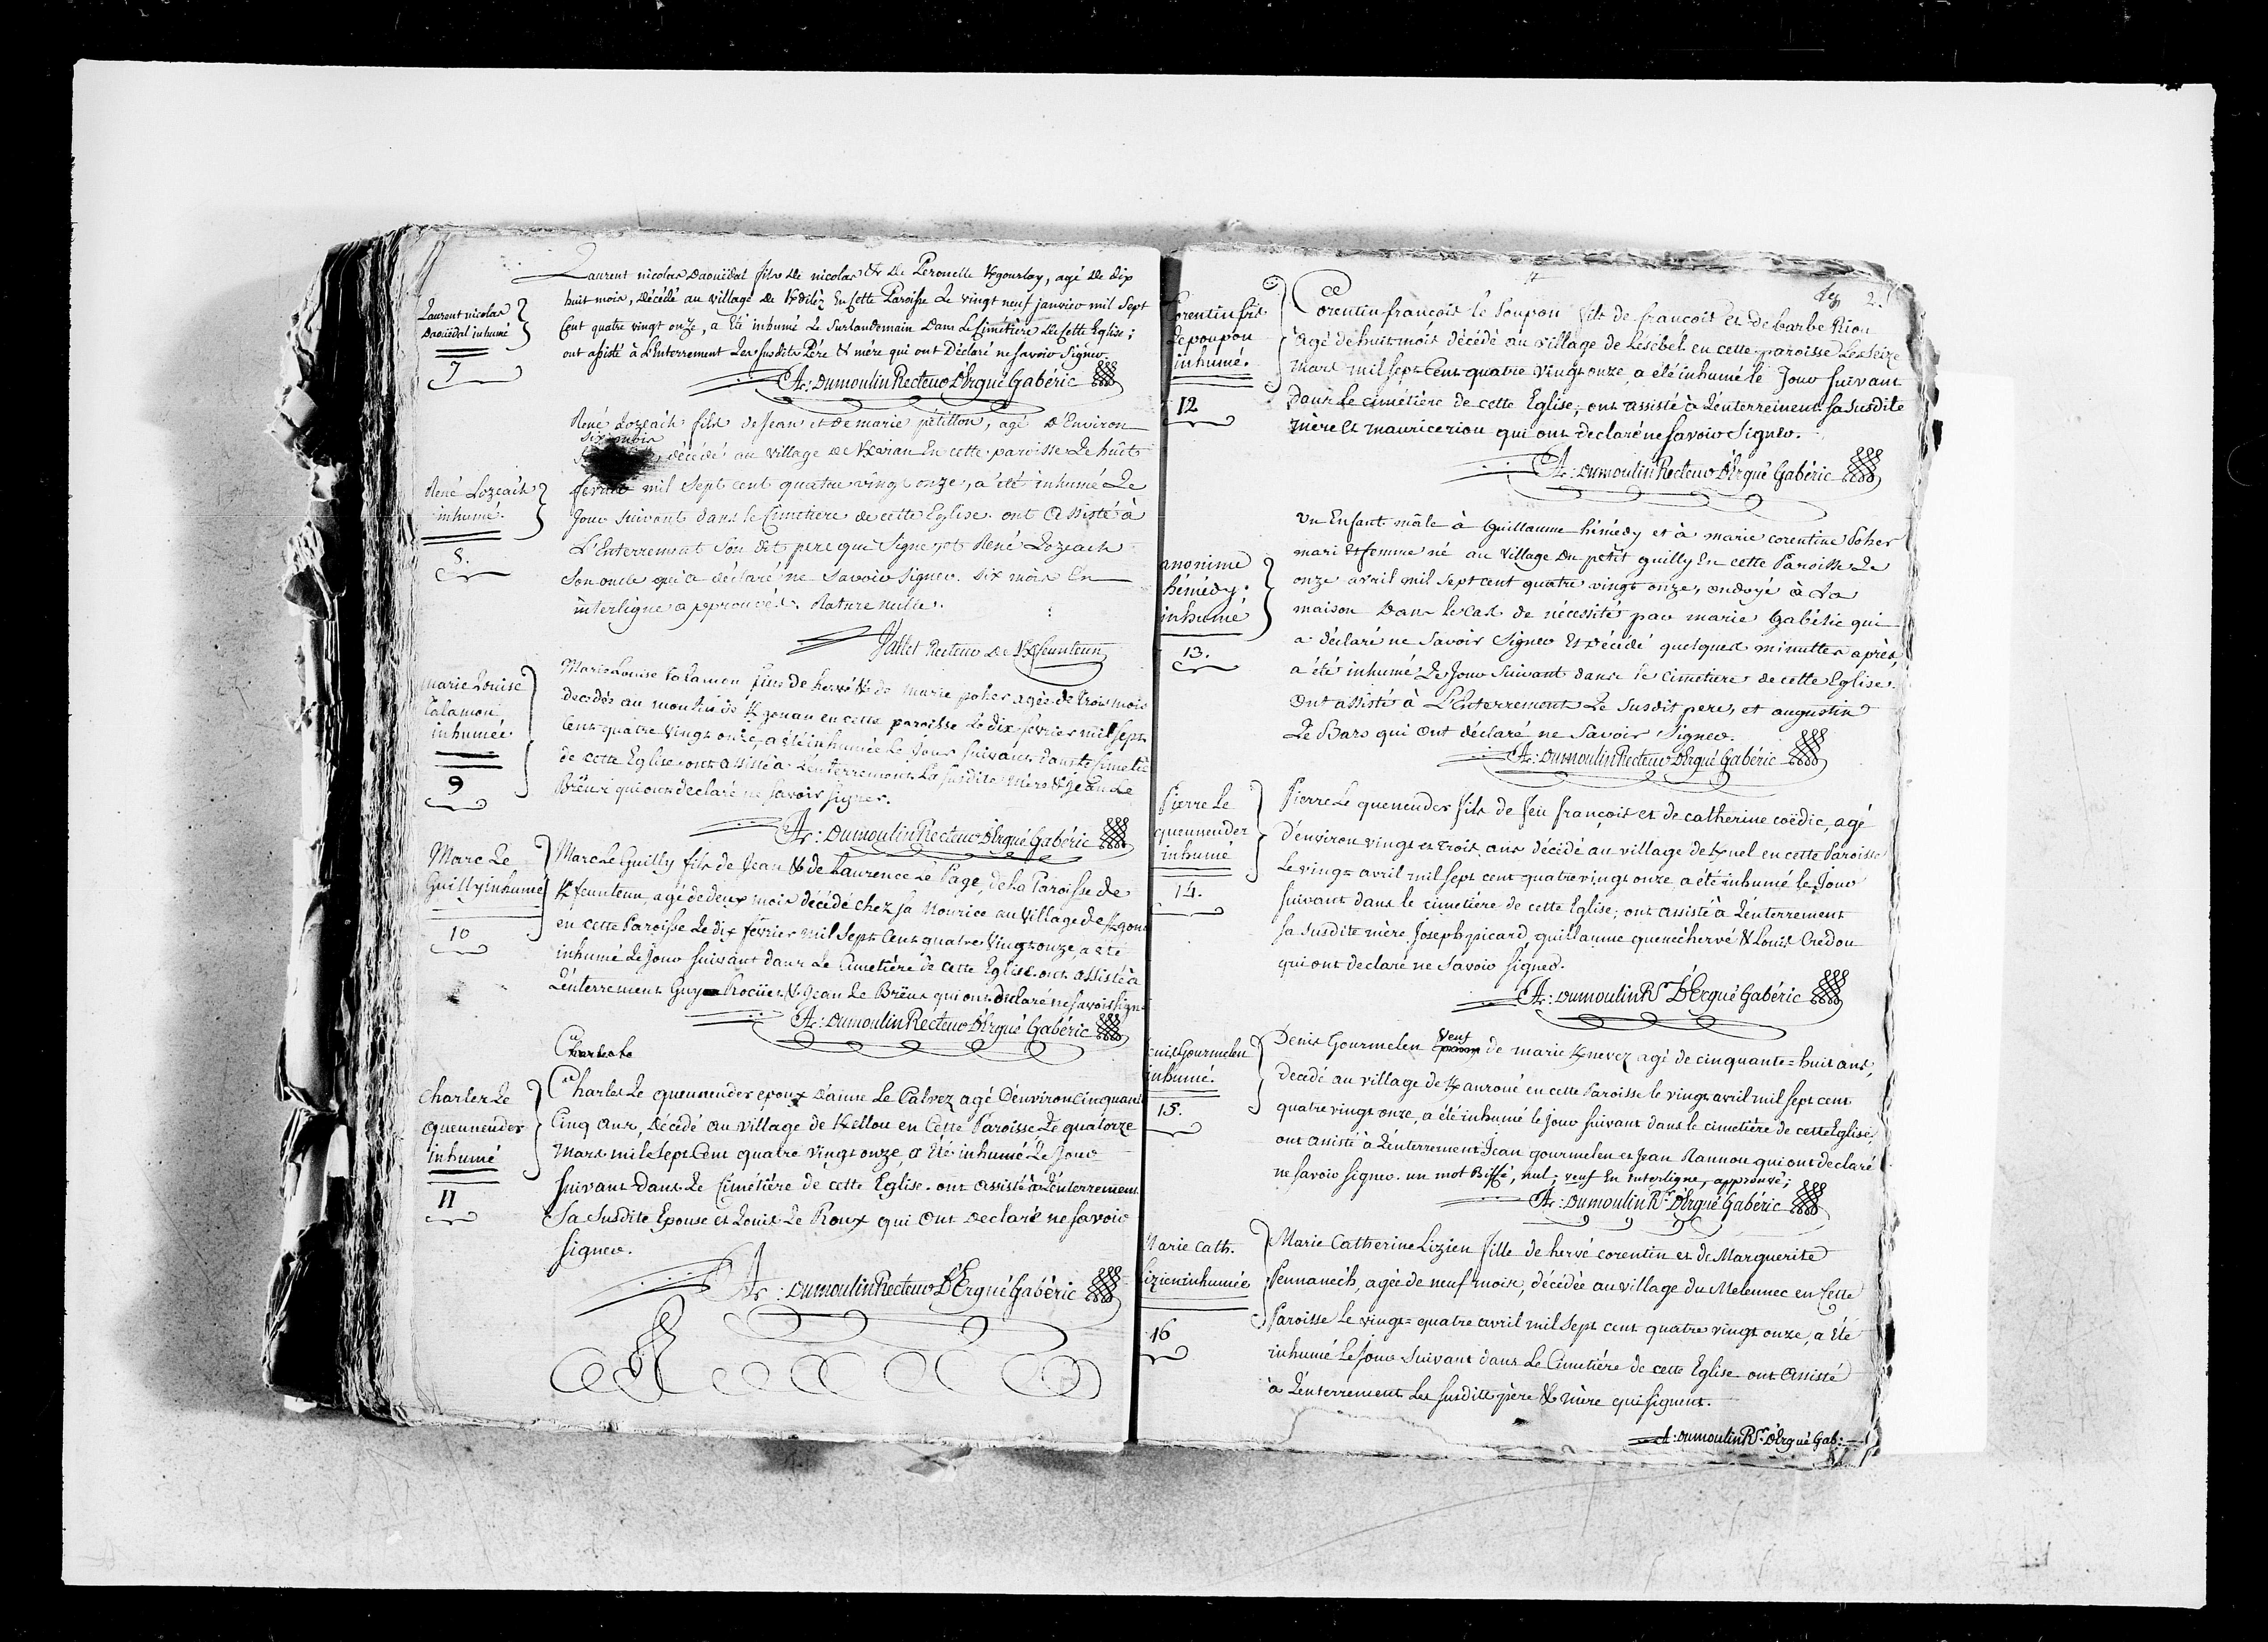 Laurent nicolas
Daouidal inhumé
7
Laurent nicolas Daouidal fils de nicolas & de Peronelle Kgourlay, agé de dix
huit mois, décédé au village de Kdilez En Cette Paroisse Le vingt neuf janvier mil Sept
Cent quatre vingt onze, a Eté inhumé Le Surlandemain Dans Le Cimétière de Cette Eglise;
ont assisté à L'Enterrement Les susdits Père & mère qui ont Déclaré ne savoir Signer.
A: Dumoulin Recteur D'Ergué Gabéric
René Lozeach
inhumé.
8.
René Lozeach fils de Jean et de marie pétillon, agé d'Environ
six mois
, décédé au village de Kvrian En cette paroisse Le huit
fevrier mil Sept cent quatre vingt onze, a été inhumé Le
Jour Suivant dans le Cimetiere de cette Eglise. ont assisté à
L'Enterrement Son dit pere qui Signe, et René Lozeach
Son oncle qui a déclaré ne Savoir Signer. Six mois En
interligne approuvés. Rature nulle.
Vallet Recteur de Kfeunteun
Marie Louise
Talamon
inhumée
9
Marie Louise Talamon fille de hervé & de Marie poher agée de trois mois
decedée au moulin de Kgonan en cette paroisse Le dix février mil sept
Cent quatre Vingt onze, a été inhumée le Jour suivant dans le Cimetiè
de cette Eglise. ont assisté à L'enterrement La susdite mère & jean Le
Brëus qui ont declaré ne savoir signer.
A: Dumoulin Recteur D'Ergué Gabéric
Marc Le
Guilly inhumé
10
Marc Le Guilly fils de Jean & de Laurence Le Page, de La Paroisse de
Kfeunteun, agé de deux mois décédé chez sa Nourice au Village de Kgon
en cette Paroisse Le dix février mil Sept Cent quatre Vingt onze, a été
inhumé Le Jour suivant dans Le Cimetière de cette Eglise. ont assisté à
L'enterrement Guy Rocüet & Jean Le Brëus qui ont déclaré ne savoir sign
A: Dumoulin Recteur D'Ergué Gabéric
Charles Le
Charles Le
queuneuder
inhumé
11
Charles Le queuneuder epoux d'anne Le Calvez agé D'environ Cinquante
Cinq ans, Décédé au village de Kellou en Cette Paroisse Le quatorze
Mars mil Sept Cent quatre vingt onze, a Eté inhumé Le Jour
suivant dans Le Cimétière de cette Eglise. ont assisté à L'enterrement
Sa Susdite Epouse et Louis Le Roux qui Ont declaré ne savoir
signer.
A: Dumoulin Recteur D'Ergué Gabéric
2.
Corentin fris
Le poupon
inhumé.
12
Corentin françois le Poupon fils de francois et de barbe Riou
agé de huit mois décédé au village de Lesebel en cette paroisse Le Seize
Mars mil sept Cent quatre Vingt onze, a été inhumé le Jour suivant
dans le cimétière de cette Eglise, ont assisté à L'enterrement sa susdite
mère Et Maurice riou qui ont declaré ne Savoir Signer.
A: Dumoulin Recteur D'Ergué Gabéric
anonime
hémédy:
inhumé
13.
Un Enfant mâle à Guillaume hémédy et à marie corentine Poher
mari Et femme né au Village du petit guilly En cette Paroisse Le
onze avril mil sept cent quatre vingt onze, ondoyé à La
maison Dans le cas de nécessité par marie Gabélic qui
a déclaré ne Savoir Signer Et décédé quelques minuttes après,
a été inhumé Le Jour Suivant dans le cimetiere de cette Eglise.
Ont assisté à L'Enterrement Le Susdit pere, et augustin
Le Bars qui Ont déclaré ne Savoir Signer.
A: Dumoulin Recteur D'Ergué Gabéric
Pierre Le
queuneuder
inhumé
14.
Pierre Le queuneuder fils de feu françois et de catherine coëdic, agé
d'environ vingt et trois ans décédé au village de Knel en cette Paroisse
Le vingt avril mil sept cent quatre vingt onze, a été inhumé le Jour
suivant dans le cimetière de cette Eglise; ont assisté à L'enterrement
sa susdite mère, Joseph picard, guillaume quenechervé & Louis Credou
qui ont declaré ne Savoir signer.
A: Dumoulin Rr. D'Ergué Gabéric
Denis Gourmelen
inhumé.
15.
Denis Gourmelen veuf de marie Knevez agé de cinquante=huit ans,
decedé au village de Kauroué en cette Paroisse le vingt avril mil sept cent
quatre vingt onze, a été inhumé le jour suivant dans le cimetière de cette Eglise,
ont assisté à L'enterrement Jean gourmelen et Jean Rannou qui ont declaré
ne savoir signer. un mot Biffé, nul; veuf En interligne, approuvé;
A: Dumoulin Rr. D'Ergué Gabéric
Marie Cath.
Lizien inhumée
16
Marie Catherine Lizien fille de hervé corentin et de Marguerite
Pennanéch, agée de neuf mois, décédée au village du Melennec en Cette
Paroisse Le vingt=quatre avril mil Sept cent quatre vingt onze, a Eté
inhumé Le Jour Suivant dans Le Cimetière de cette Eglise ont assisté
à L'enterrement Les susditts père & mère qui signent.
A: Dumoulin Rr. D'Ergué Gab: